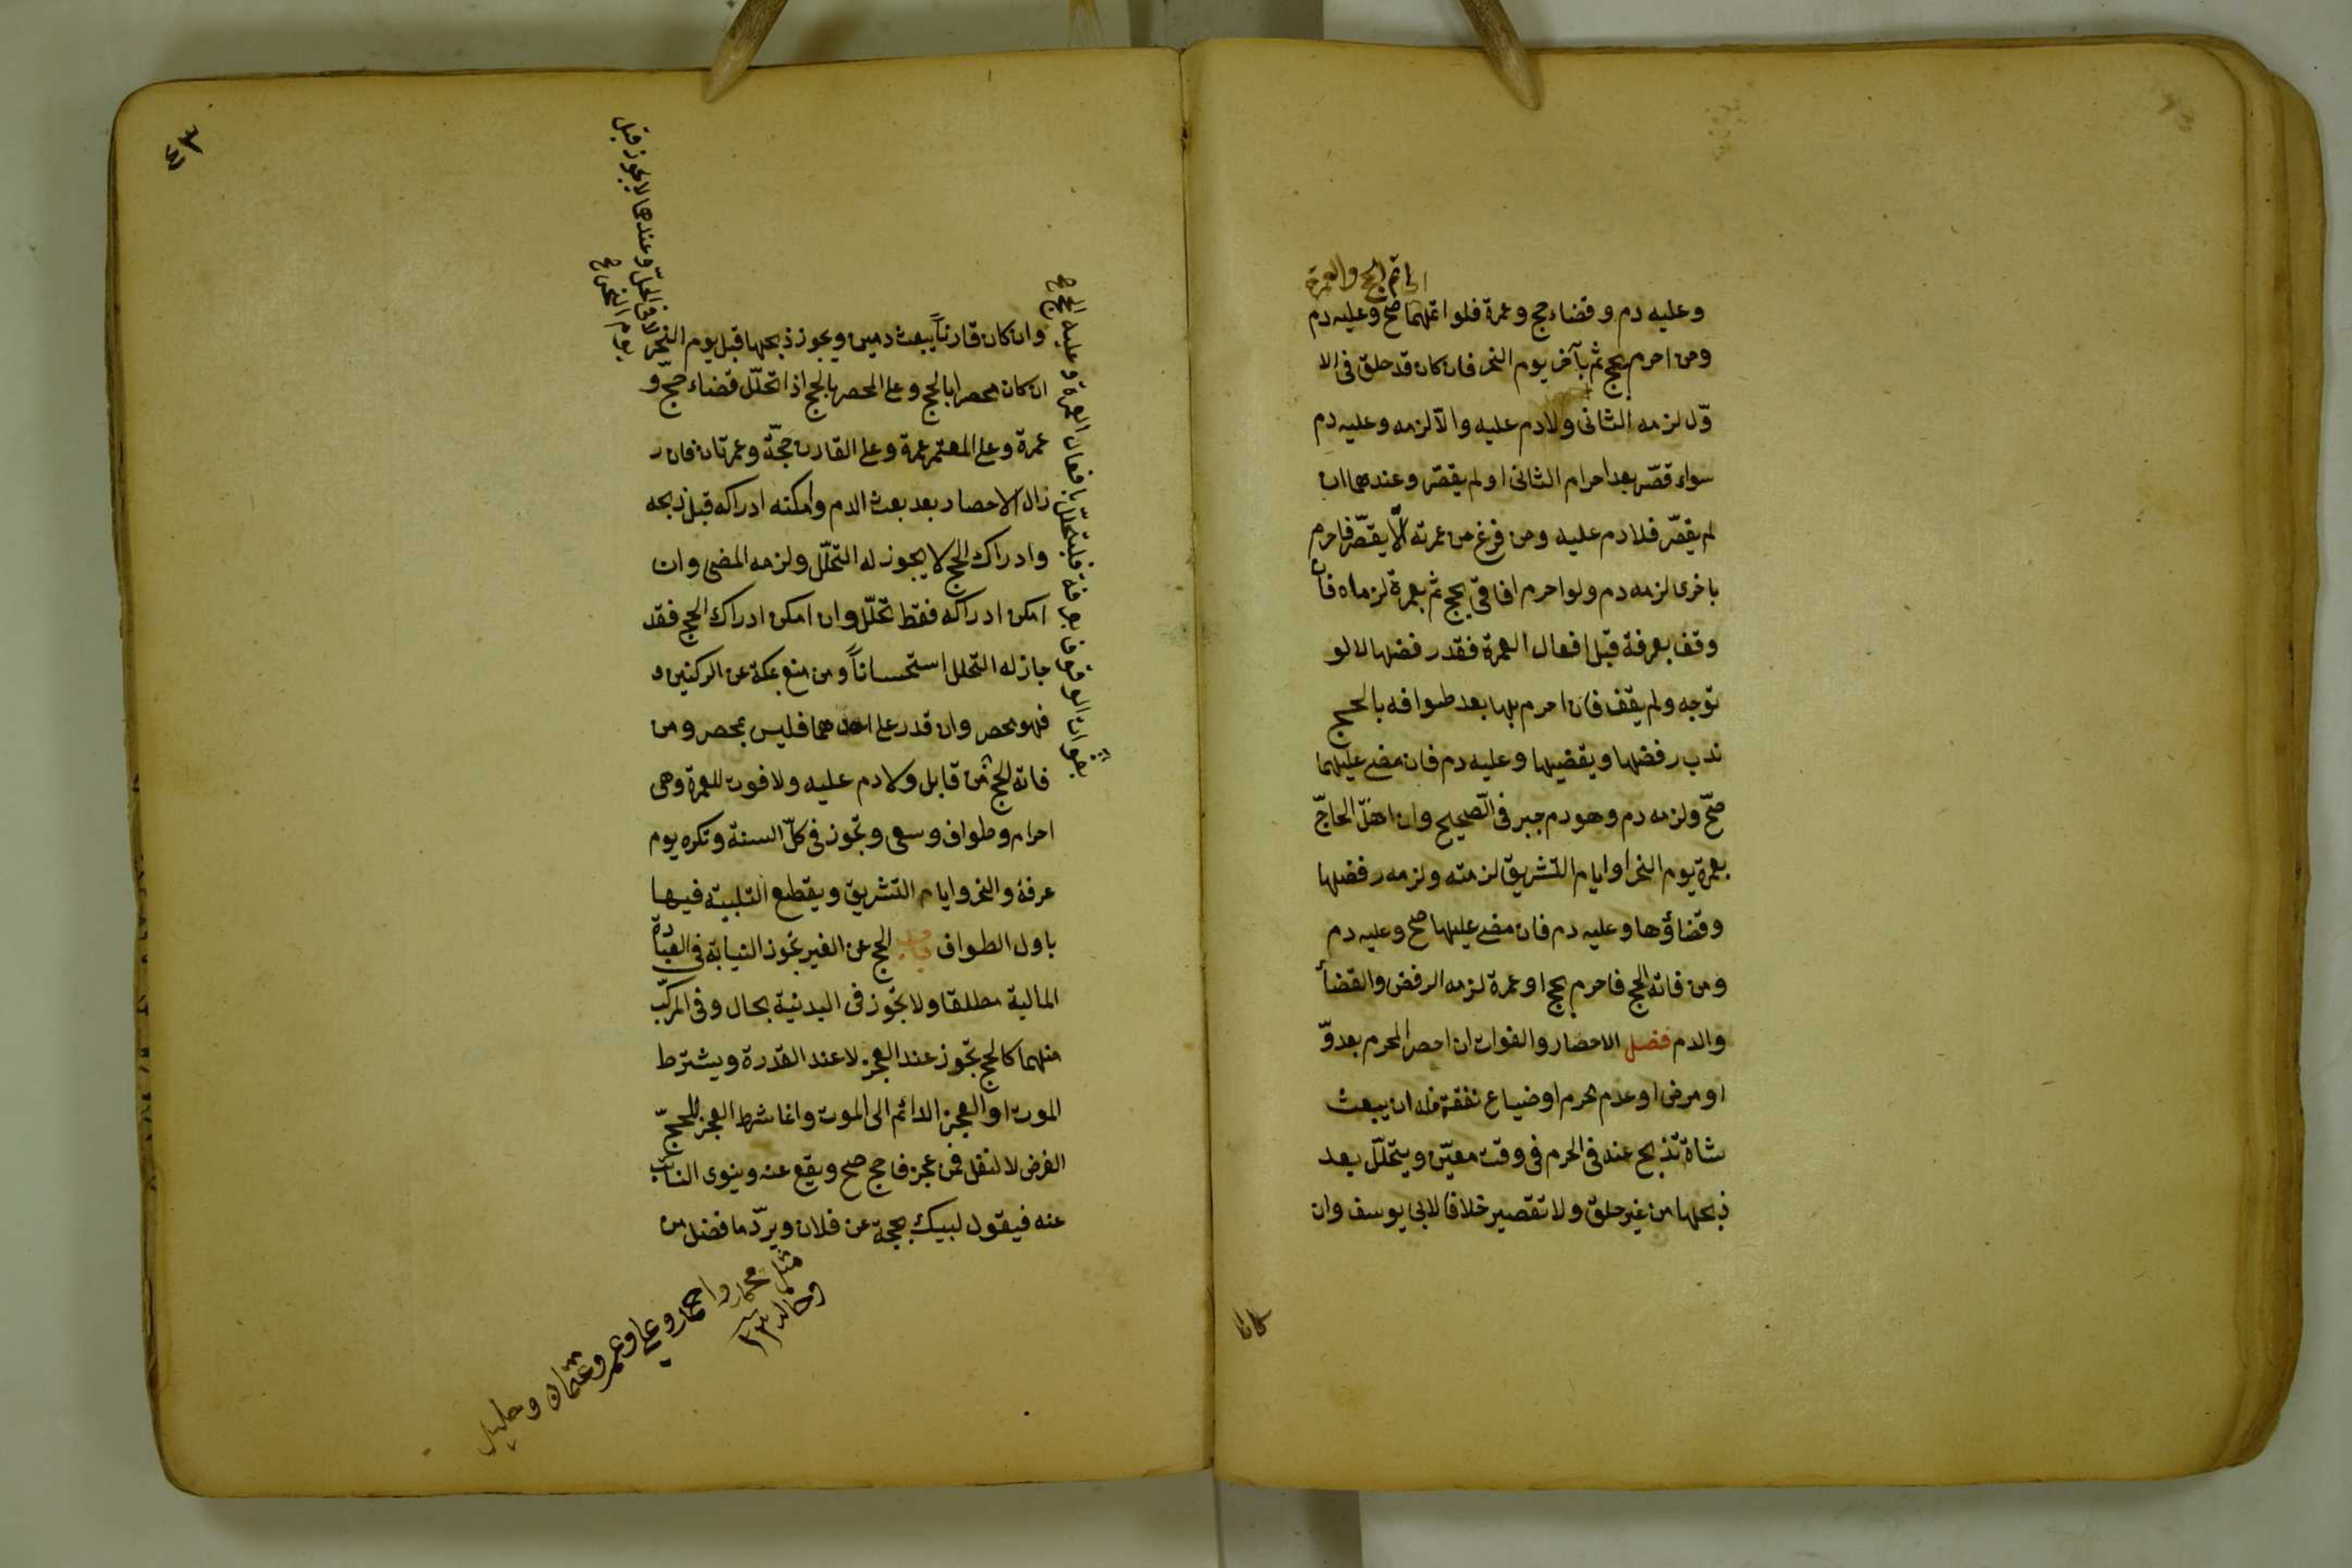 اى اتم الحج والعمرة
وعليه دم وقضاء حج وعمرة فلو اتمهما صح وعليه دم
ومن احرم بحج ثم بآخر يوم النحر فان كان قد حلق فى الا
وّل لزمه الثانى ولا دم عليه والاّ لزمه وعليه دم
سواء قصّر بعد احرام الثانى او لم يقصّر وعندهما ان
لم يقصّر فلا دم عليه ومن فرغ من عمرته الاّ يقصّر فاحرم
باخرى لزمه دم ولو احرم افاقى بحج ثم بعمرة لزماه فان
وقف بعرفة قبل افعال العمرة فقد رفضها لا لو
توجه ولم يقف فان احرم بها بعد طوافه بالحج
ندب رفضها ويقضيها وعليه دم فان مضى عليهما
صحّ ولزمه دم وهو دم جبر فى الصّحيح وان اهلّ الحاجّ
بعمرة يوم النحر او ايام التشريق لزمته ولزمه رفضها
وقضاؤها وعليه دم فان مضى عليها صح وعليه دم
ومن فاته الحج فاحرم بحج او عمرة لزمه الرفض والقضأ
والدم فصل الاحصار والفوات ان احصر المحرم بعدوّ
او مرض او عدم محرم او ضياع نفقة فله ان يبعث
شاة تذبح عنه فى الحرم فى وقت معيّن ويتحلّل بعد
ذبحها من غير حلق ولا تقصير خلافا لابى يوسف وان
وان كان
٤٣
وان كان قارناً يبعث دمين ويجوز ذبحها قبل يوم النحر لا فى الحلّ وعندهما لا يجوز قبل
يوم النحر ان
ان كان محصرا بالحج وعلى المحصر بالحج اذا تحلّل قضاء حجّ و
عمرة وعلى المعتمر عمرة وعلى القارن حجّة وعمرتان فان
زال الاحصار بعد بعث الدم وامكنه ادراكه قبل ذبحه
وادراك الحج لا يجوز له التحلّل ولزمه المضى وان
امكن ادراكه فقط تحلّل وان امكن ادراك الحج فقد
جاز له التحلل استحساناً ومن منع بمكة عن الركنين و
فهو محصر وان قدر على احدهما فليس بمحصر ومن
فاته الحج من قابل ولا دم عليه ولا فوت للعمرة وهى
بفوات الوقوف بعرفة فليتحلّل بافعال العمرة وعليه الحج
احرام وطواف وسعى وتجوز فى كلّ السنة وتكره يوم
عرفة والنحر وايام التشريق ويقطع التلبية فيها
باول الطواف باب الحج عن الغير تجوز النيابة فى العبادة
المالية مطلقا ولا تجوز فى البدنية بحال وفى المركّب
منهما كالحج تجوز عند العجز لا عند القدرة ويشترط
الموت او العجز الدائم الى الموت وانما شرط العجز للحجّ
الفرض لا لنفل فمن عجز فاحج صح ويقع عنه وينوى النائب
عنه فيقول لبيك بحجة عن فلان ويردّ ما فضل من
مثل محمد واحمد وعلى وعمر وعثمان وخليل
وخالد